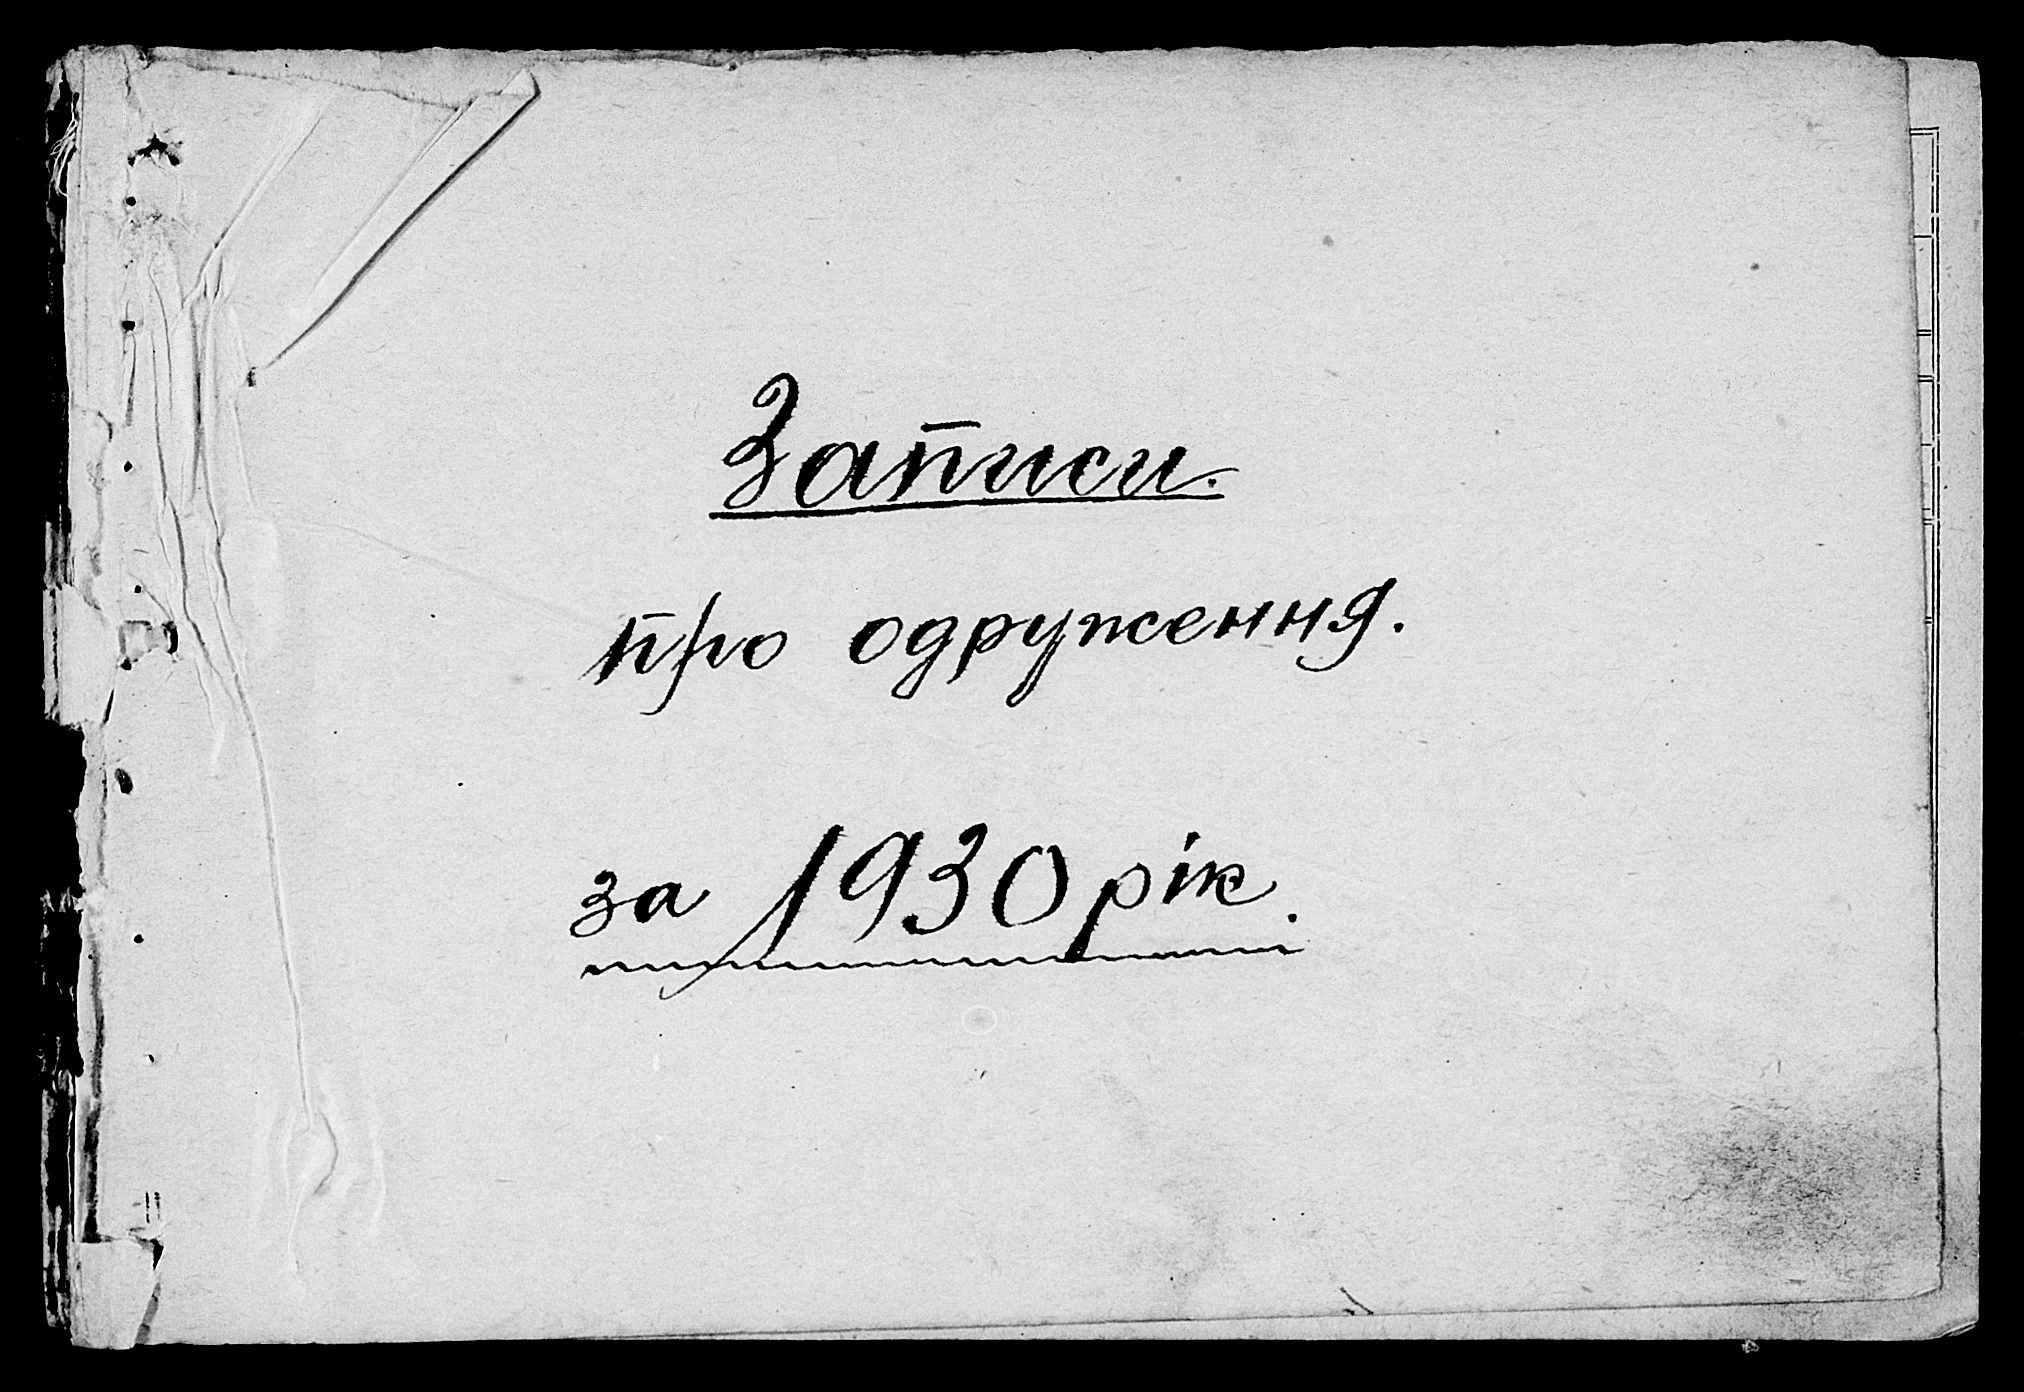 Записи.
про одруження.
за 1930 рік.